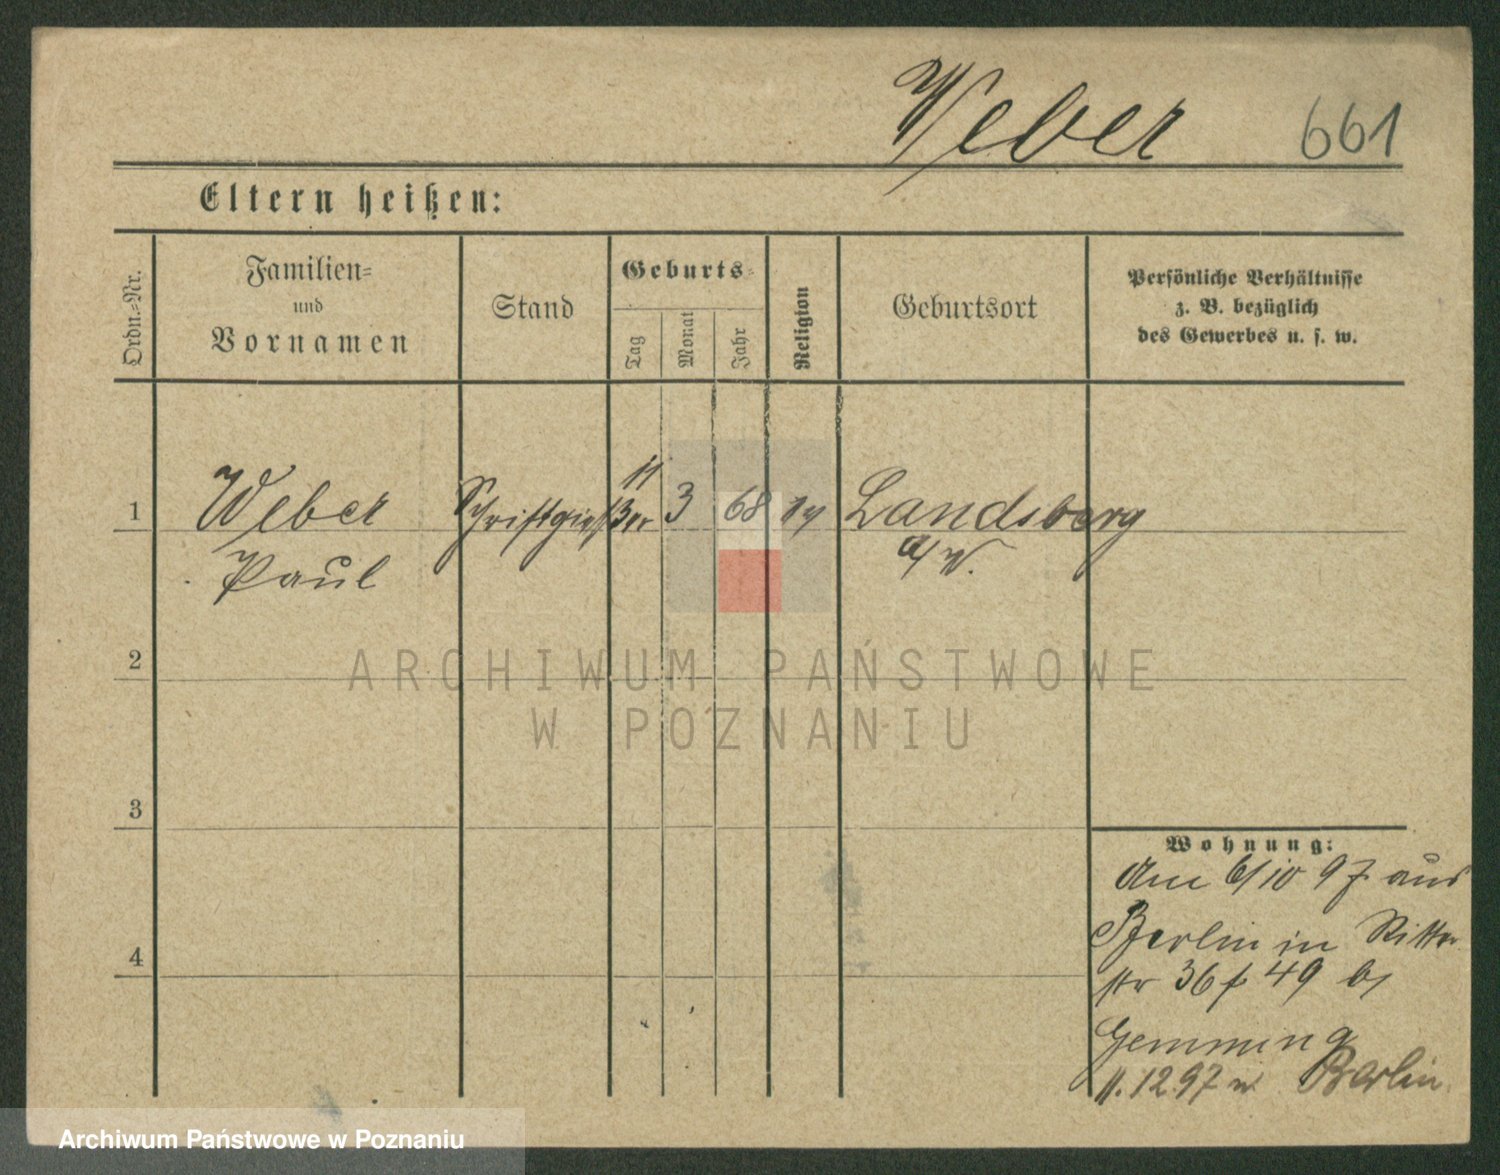 Weber 661
Eltern heißen:
Ordn.=Nr.
Familien=
und
Vornamen
Stand
Geburts=
Tag
Monat
Jahr
Religion
Geburtsort
Persönliche Verhältnisse
z. B. bezüglich
des Gewerbes u. s. w.
1 Weber Schriftgießer 11 3 68 Landsberg
Paul a/W.
2
ARCHIWUM PAŃSTWOWE
W POZNANIU
3
Wohnung:
Am 6/10 97 aus
Berlin in Ritter
4
str 36 49 b/
Gemming
11.12.97 n. Berlin.
Archiwum Państwowe w Poznaniu